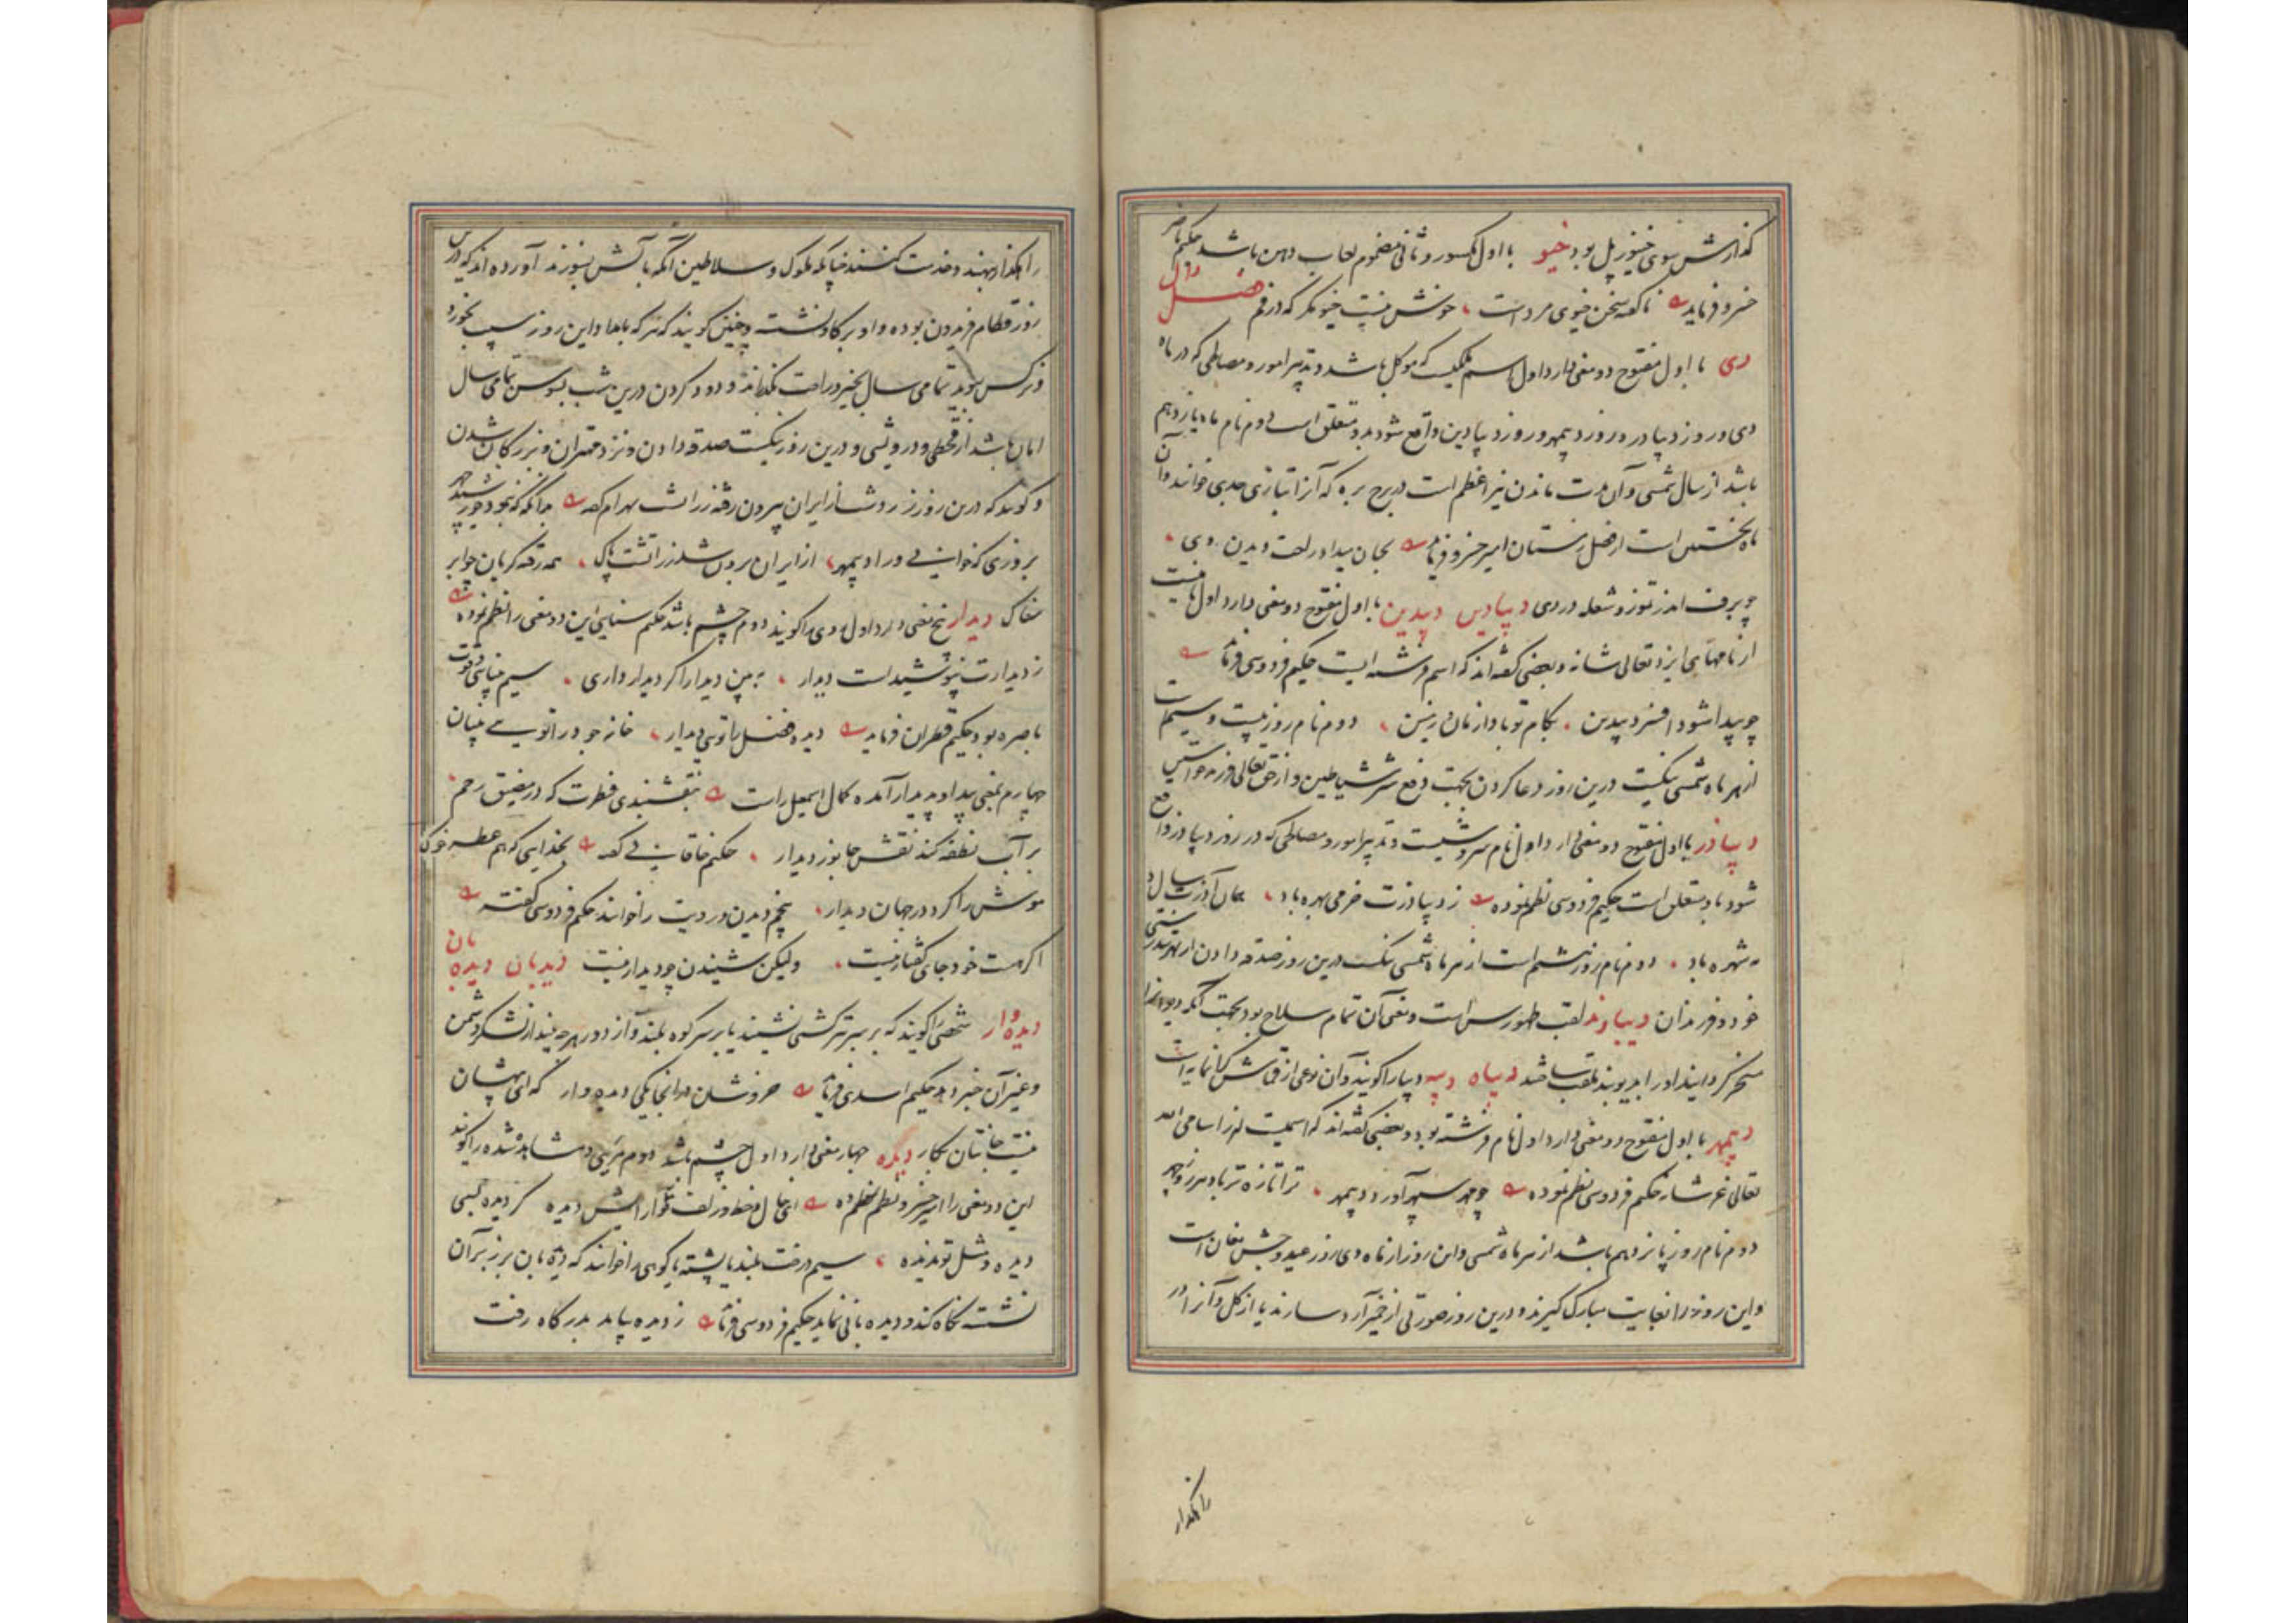 گذارش سوی خینور پل بود خیو با اول مکسور و ثانی مضموم لعاب دهن باشد حکیم
خسرو فرماید ناگفته سخن خیوی مرد است خونش نیست خیو مگر که در فم فصل دال
دی با اول مفتوح دو معنی دارد اول اسم ملکیست که موکل باشد و تدبیر امور و مصالحی که در ماه
دی و روز دیباذر و روز دیبمهر و روز دیبادین واقع شود بدو متعلق است دوم نام ماه یازدهم
باشد از سال شمسی و آن مدت ماندن نیر اعظم است در برج بره که آنرا بتازی جدی خوانند و آن
ماه نخستین است از فصل زمستان امیر خسرو فرماید بجان بیداور لعت دیدن دی
چو برف اندر تموز و شعله در دی دیبادین دیبدین با اول مفتوح دو معنی دارد اول نامیست
از نامهای ایزد تعالی شانه و بعضی گفته اند که اسم فرشته ایست حکیم فردوسی فرماید
چو پیدا شود افسر دیبدین بکام تو بادا زمان و زمین دوم نام روز بیست و سیم است
از هر ماه شمسی نیکست درین روز دعا کردن بجهت دفع شر شیاطین و از حق تعالی فرزند خواستن
دیباذر با اول مفتوح دو معنی دارد اول نام سروشیست و تدبیر امور و مصالحی که در روز دیباذر واقع
شود بدو متعلق است حکیم فردوسی نظم نموده ز دیباذرت خرمی بهره باد همان آذرت سال و
مه شهره باد دوم نام روز هشتم است از هر ماه شمسی نیکست درین روز صدقه دادن از بهر تندرستی
خود و فرزندان دیباوند لقب طهمورس است و معنی آن تمام سلاح بود بجهت آنکه دیوانرا
مسخر گردانید او را بدیوبند ملقب ساختند دیباه دیبه دیبا را گویند و آن نوعی از قماش گرانمایه است
دیبمهر با اول مفتوح دو معنی دارد اول نام فرشته بود و بعضی گفته اند که اسمیست از اسامی الله
تعالی عز شانه حکیم فردوسی نظم نموده چو مهر سپهر آورد دیبمهر ترا تازه تر باد هر روز چهر
دوم نام روز پانزدهم باشد از هر ماه شمسی و این روز از ماه دی روز عید و جشن مغان است
و این روز را بغایت مبارک گیرند و درین روز صورتی از خمیر آرد سازند یا از گل و آنرا در
را بگذار
را بگذار نهند و خدمت کنند چنانکه ملوک و سلاطین آنگه بآتش بسوزند آورده اند که درین
روز فطام فریدون بوده و او بر گاو نشست و چنین گویند که هر که بامداد این روز سیب بخورد
و نرگس ببوید تمامی سال بخیر و راحت بگذراند و دود کردن درین شب بسوسن تمامی سال
امان باشد از قحطی و درویشی و درین روز نیکست صدقه دادن و نزد مهتران و بزرگان شدن
و گویند که درین روز زردشت از ایران بیرون رفته زراتشت بهرام گفته
بروزی که خوانی ورا دیبمهر از ایران برون شد زراتشت پاک همه رفته گریان چو ابر
مغاک دیدار پنج معنی دارد اول روی را گویند دوم چشم باشد حکیم سنایی این دو معنی را نظم نموده
ز دیدارت نپوشیدست دیدار ببین دیدار اگر دیدار داری سیم بینایی و قوت
باصره بود حکیم قطران فرماید
چهارم بمعنی پیدا و پدیدار آمده کمال اسمعیل راست نقشبندی فطرت که در مضیق رحم
بر آب نطفه کند نقش جانور دیدار حکیم خاقانی گفته بخدایی که هم ز عطسه خوک
موش را کرد در جهان دیدار پنجم دیدن و رویت را خوانند حکیم فردوسی گفته
اگر هست خود جای گفتار نیست ولیکن شنیدن چو دیدار نیست دیدبان دیده بان
دیده وار شخصی را گویند که بر سر تیر کشتی نشیند یا بر سر کوه بلند و از دور هر چه بیند از لشکر دشمن
و غیر آن خبر دهد حکیم اسدی فرماید خروشان در آنجا یکی دیده وار که ای بیهشان
نیست جانتان بکار دیده چهار معنی دارد اول چشم باشد دوم مرئی و مشاهده شده را گویند
این دو معنی را امیر خسرو نظم نموده ای خال و خط و زلف دیده گر دیده بسی
دیده و مثل تو ندیده سیم درخت بلند یا پشته یا کوهی را خوانند که دیده بان بر زبر آن
نشسته نگاه کند و دیده بانی نماید حکیم فردوسی فرماید ز دیده بیامد بدرگاه رفت